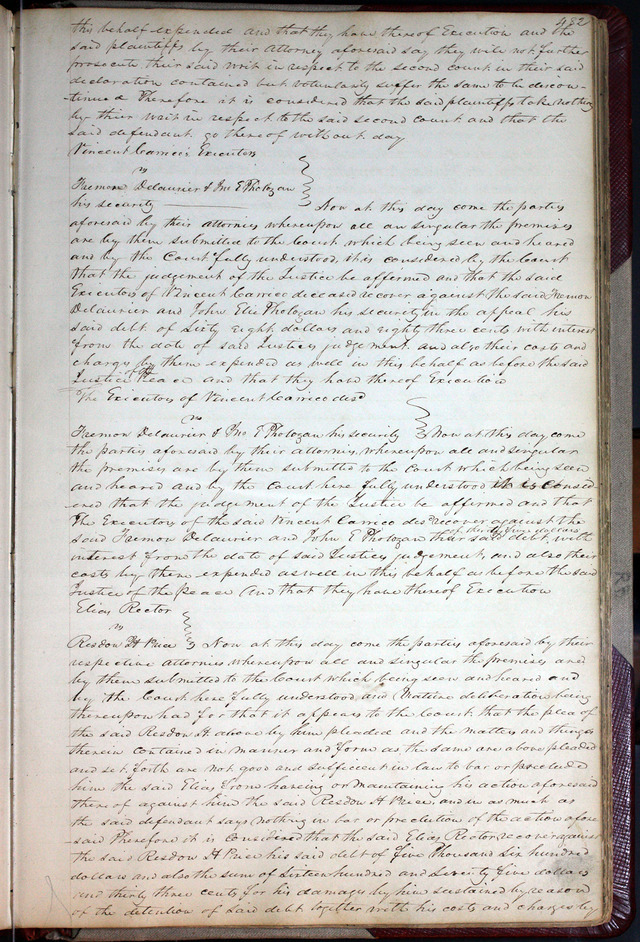 482
this behalf expended and that they have thereof Execution and the
said plaintiffs by their Attorney aforesaid say they will not further
prosecute their said writ in respect to the second count in their said
declaration contained but voluntarily suffer the same to be discon-
-tinued Therefore it is considered that the said plaintiffs take nothing
by their writ in respect to the said second count and that the
said defendant go thereof without day
Vincent Carrico's Executors
vs
Fremon Delaurier & Jno E Tholozan
his security Now at this day come the parties
aforesaid by their attornies whereupon all an singular the premises
are by them submitted to the Court which being seen and heard
and by the Court fully understood, it is considered by the Court
that the judgement of the Justice be affirmed and that the said
Executors of Vincent Carrico deceased recover against the said Fremon
Delaurier and John Elie Tholozan his security in the appeal his
said debt of Sixty Eight dollars and eighty three cents with interest
from the date of said Justices judgement and also their costs and
charges by them expended as well in this behalf as before the said
Justice of the Peace and that they have thereof Execution
The Executors of Vincent Carrico desd
vs
Fremon Delaurier & Jno E Tholozan his security Now at this day come
the parties aforesaid by their attornies, whereupon all and singular
the premises are by them submitted to the Court which being seen
and heard and by the Court here fully understood it is consid-
ered that the judgement of the Justice be affirmed and that
The Executors of the said Vincent Carrico desd recover against the
said Fremon Delaurier and John E Tholozan their said debt with
interest from the date of said Justices judgement, and also their
costs by them expended as well in this behalf as before the said
Justice of the Peace and that they have thereof Execution
Elias Rector
vs
Resdon H Price Now at this day come the parties aforesaid by their
respective attornies whereupon all and singular the premises are
by them submitted to the Court which being seen and heard and
by the Court here fully understood and Mature deliberation being
thereupon had for that it appears to the Court that the plea of
the said Resdon H above by him pleaded and the matters and things
therein contained in manner and form as the same are above pleaded
and set forth are not good and sufficient in law to bar or preclude
him the said Elias from having or maintaining his action aforesaid
thereof against him the said Resdon H Price, and in as much as
the said defendant says nothing in bar or preclution of the action afore
-said Therefore it is Considered that the said Elias Rector recover against
the said Resdon H Price his said debt of five Thousand Six hundred
dollars and also the sum of Sixteen hundred and Seventy five dollars
and thirty three cents for his damages by him sustained by reason
of the detention of said debt together with his costs and charges by